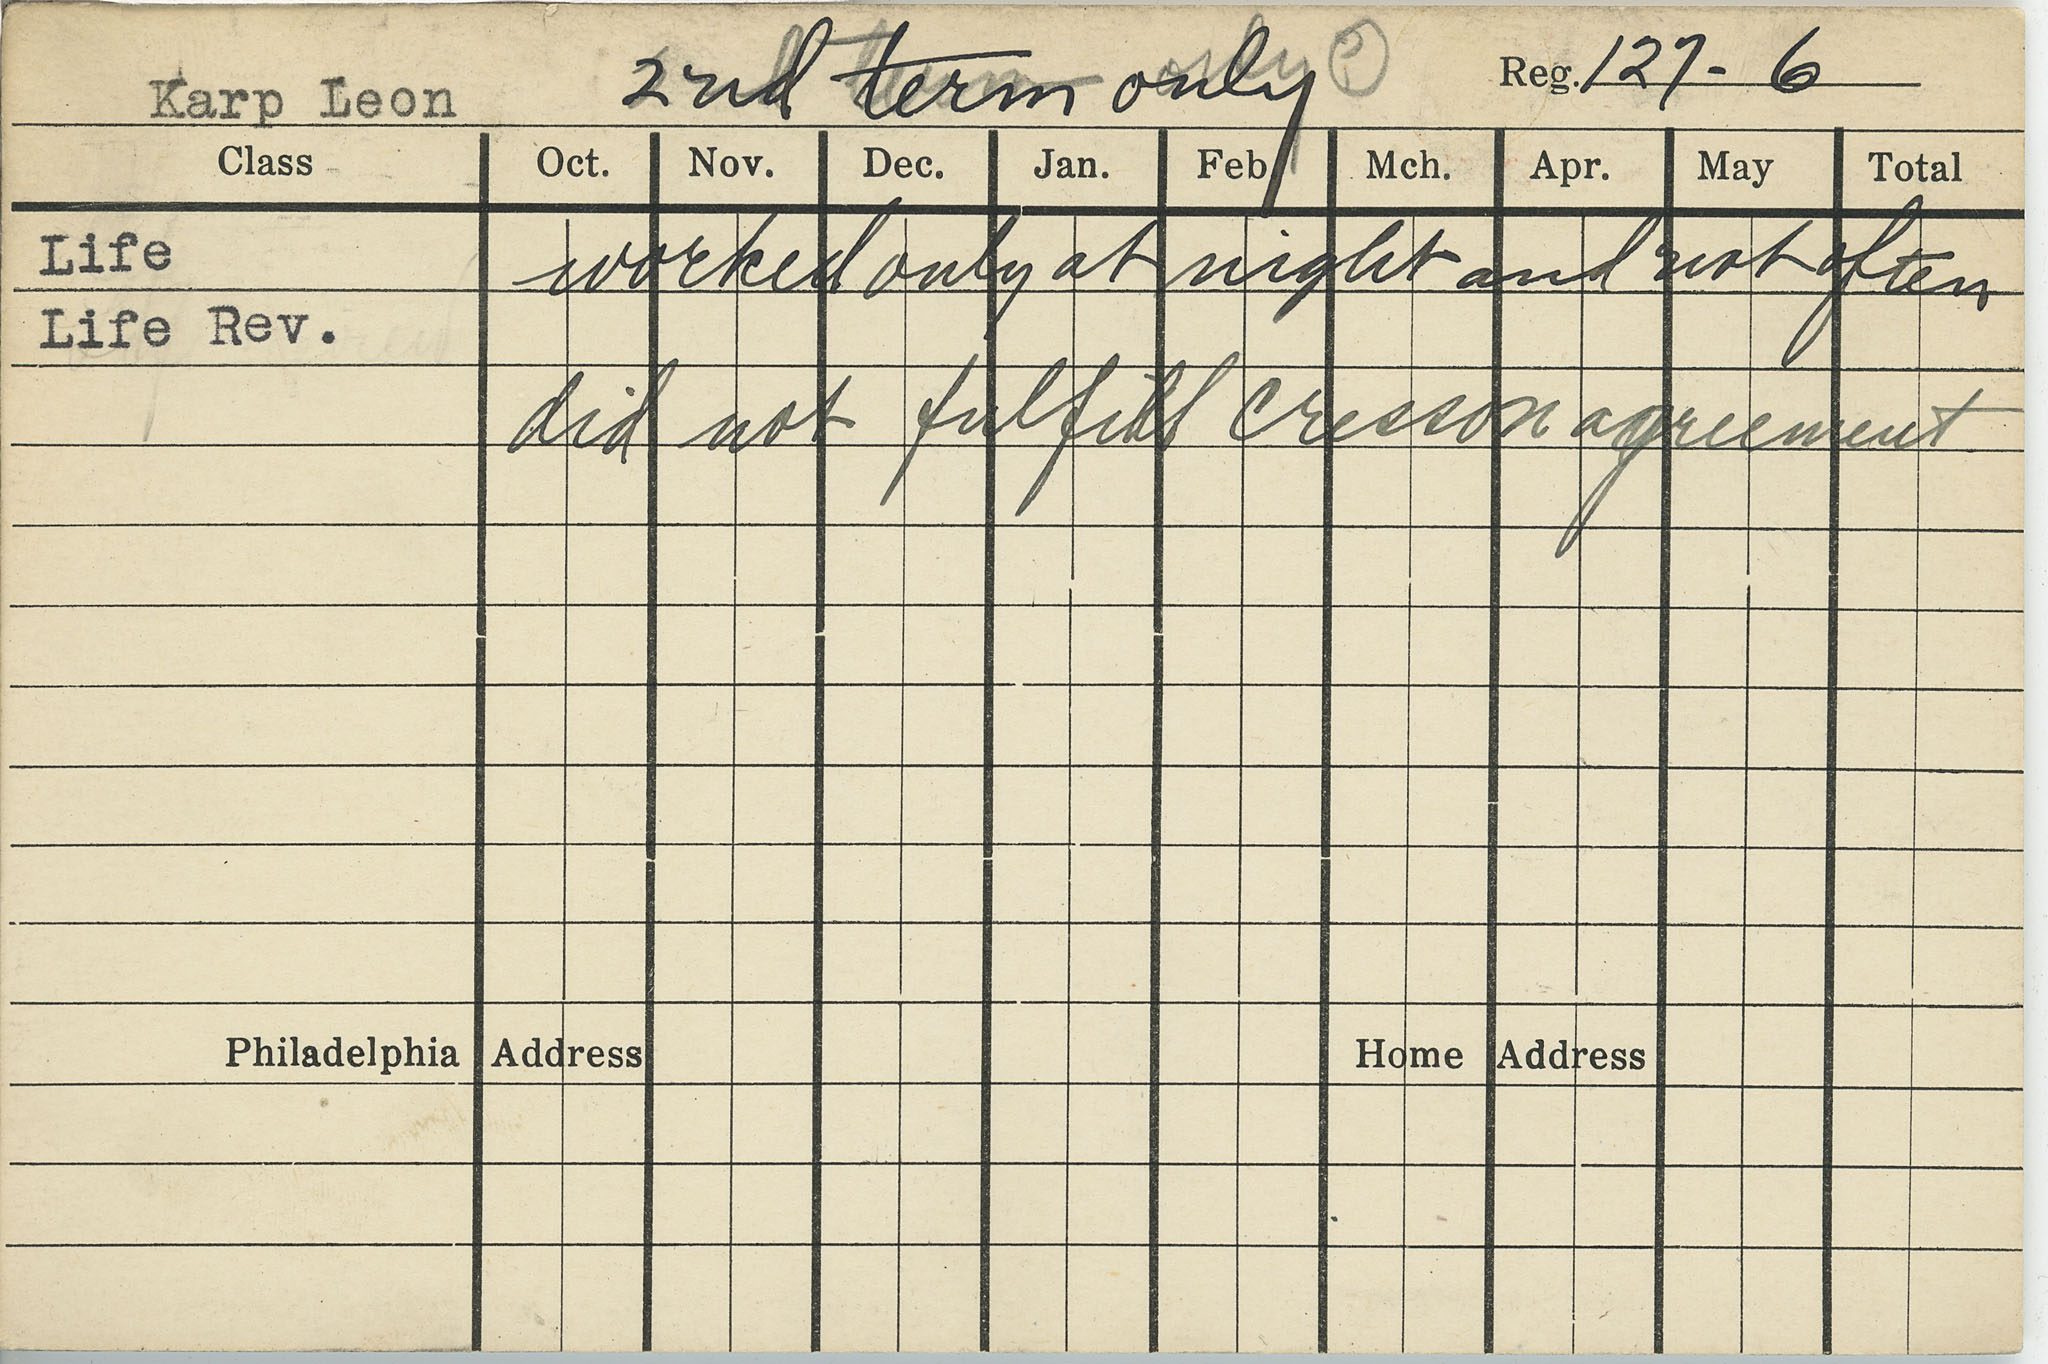 Karp Leon 2nd term only ? Reg. 127-6
Class Oct. Nov. Dec. Jan. Feb. Mch. Apr. May Total
Life worked only at night and not often
Life Rev.
did not fulfill Cresson agreement
Philadelphia Address Home Address